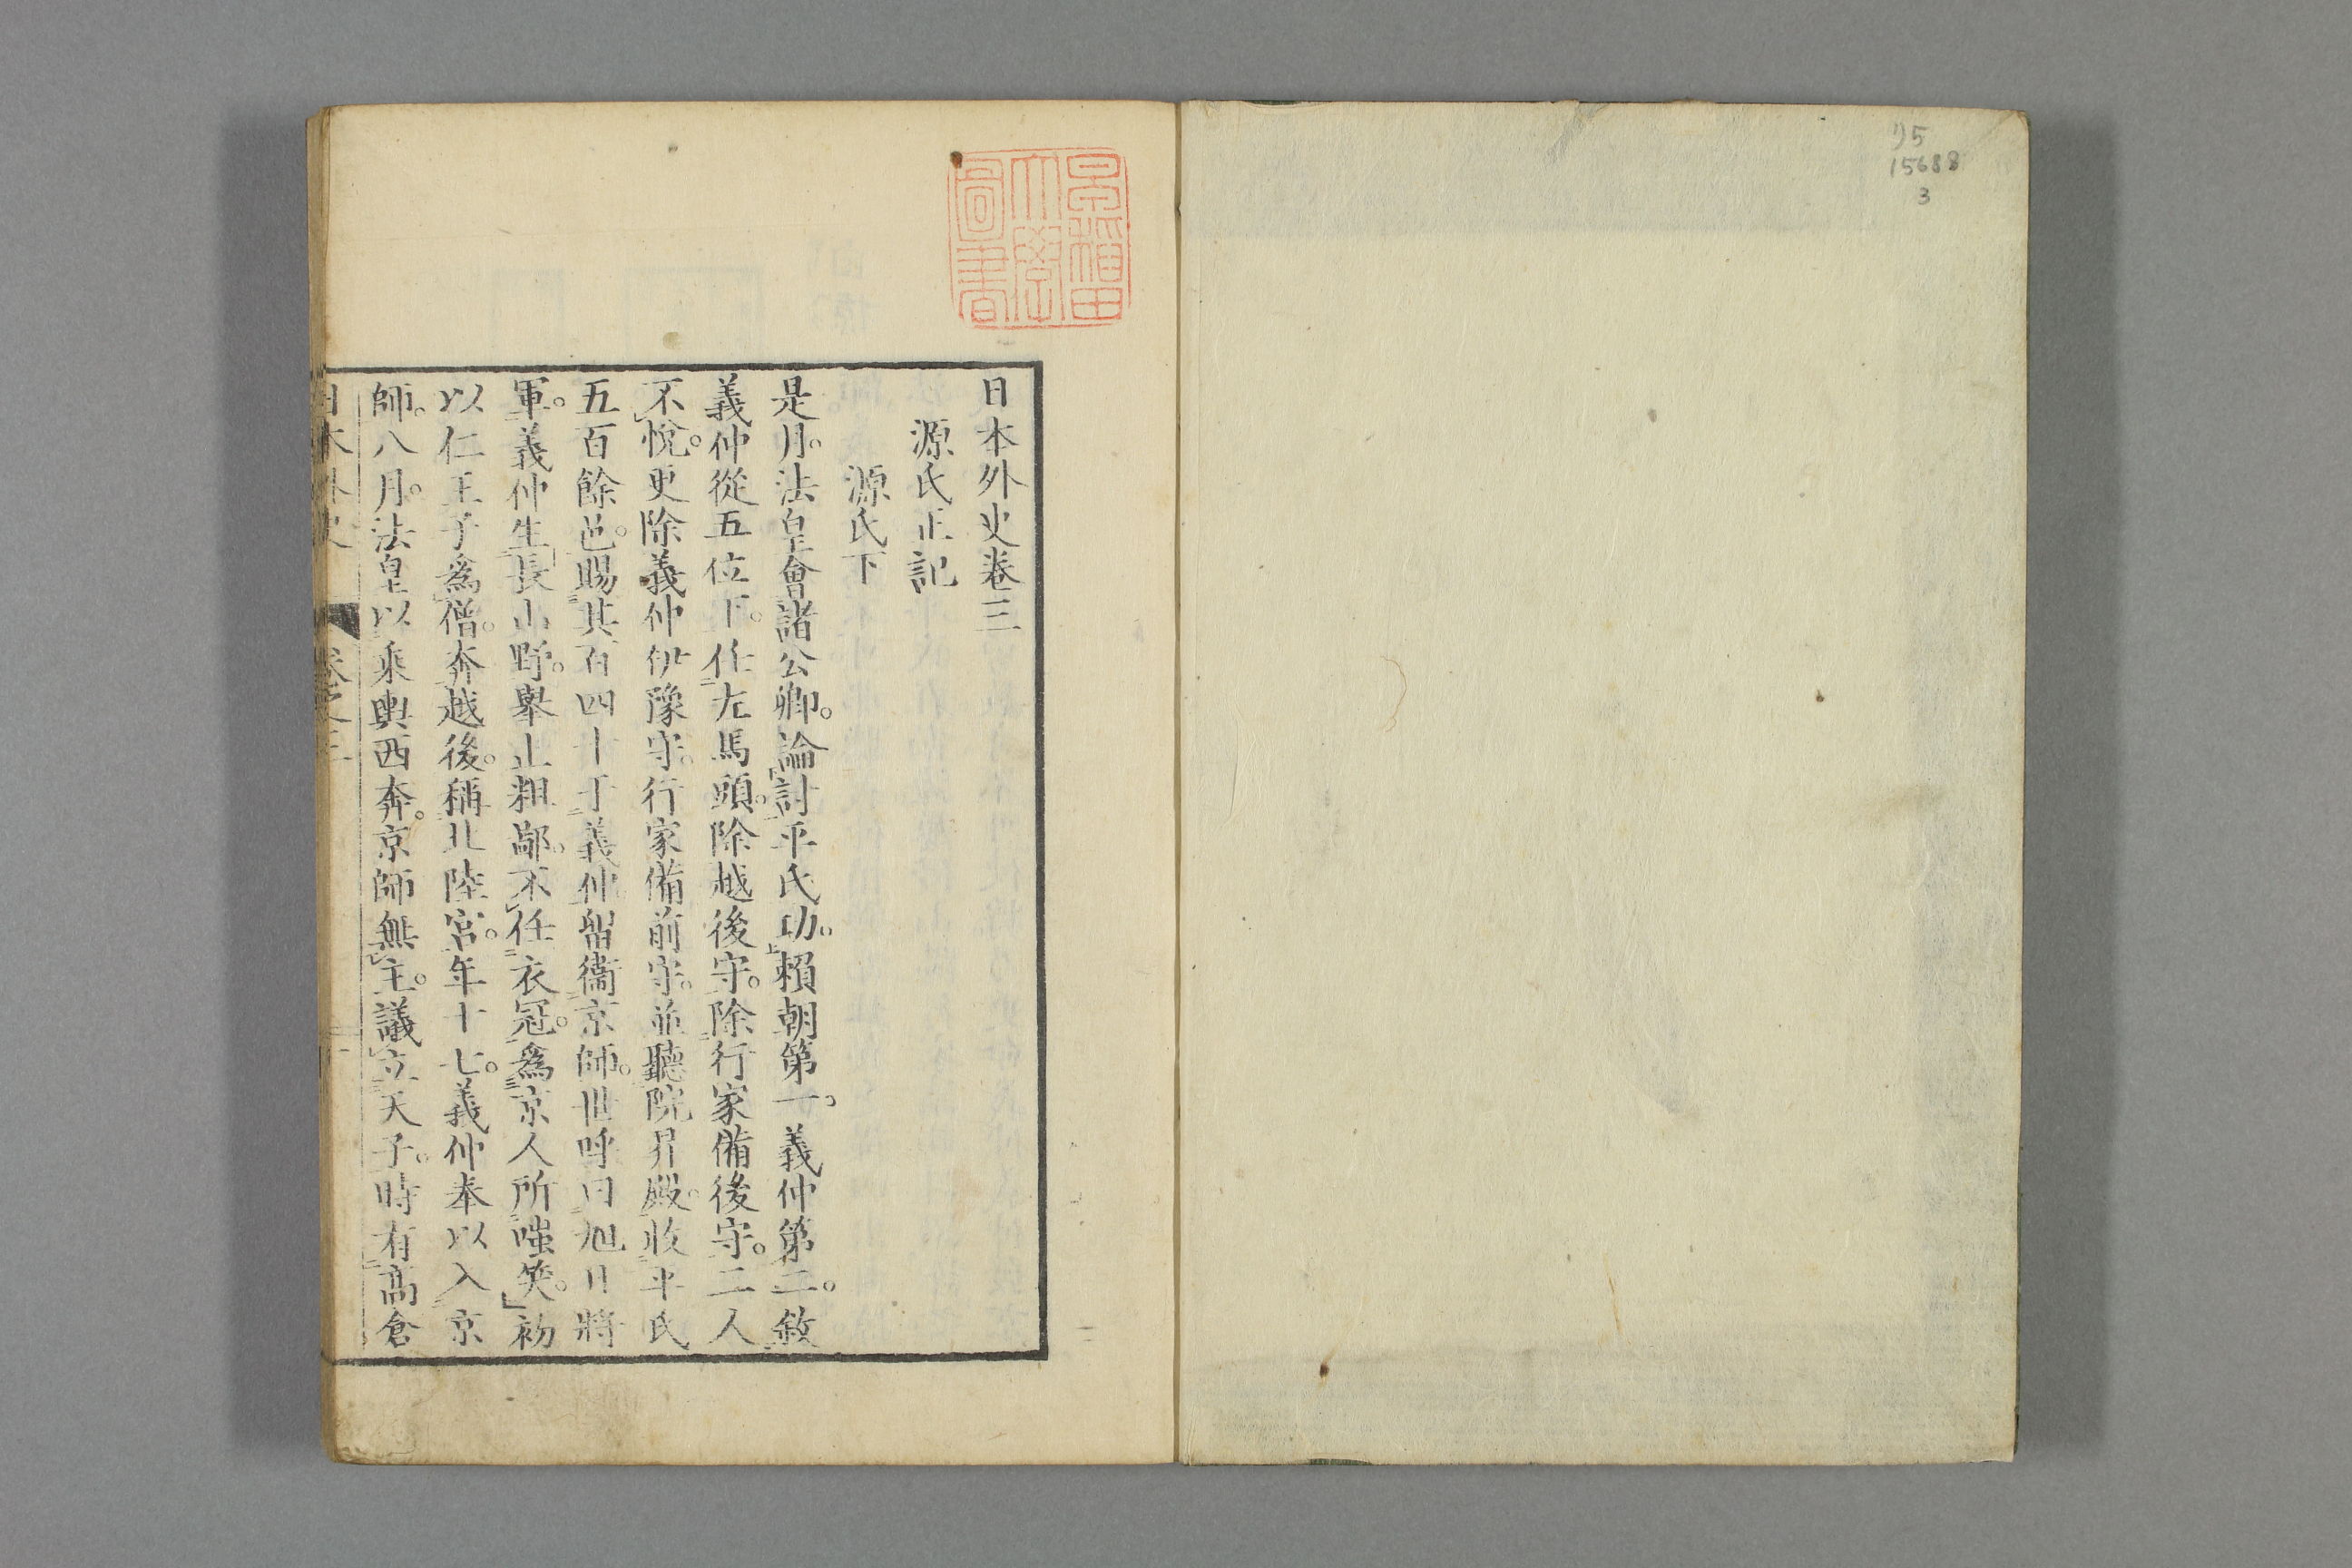 リ5
15688
3
早稲田
大學
圖書
日本外史卷三
源氏正記
源氏下
是月。法皇會諸公卿。論討平氏功。賴朝第一。義仲第二。敘
義仲從五位下。任左馬頭。除越後守。除行家備後守。二人
不悅。更除義仲伊豫守。行家備前守。並聽院昇殿。收平氏
五百餘邑。賜其百四十于義仲。留衞京師。世呼曰旭日將
軍。義仲生長山野。擧止粗鄙。不任衣冠。爲京人所嗤笑。初
以仁王子爲僧。奔越後。稱北陸宮。年十七。義仲奉以入京
師。八月。法皇以乘輿西奔。京師無主。議立天子。時有高倉
日本外史 卷之三